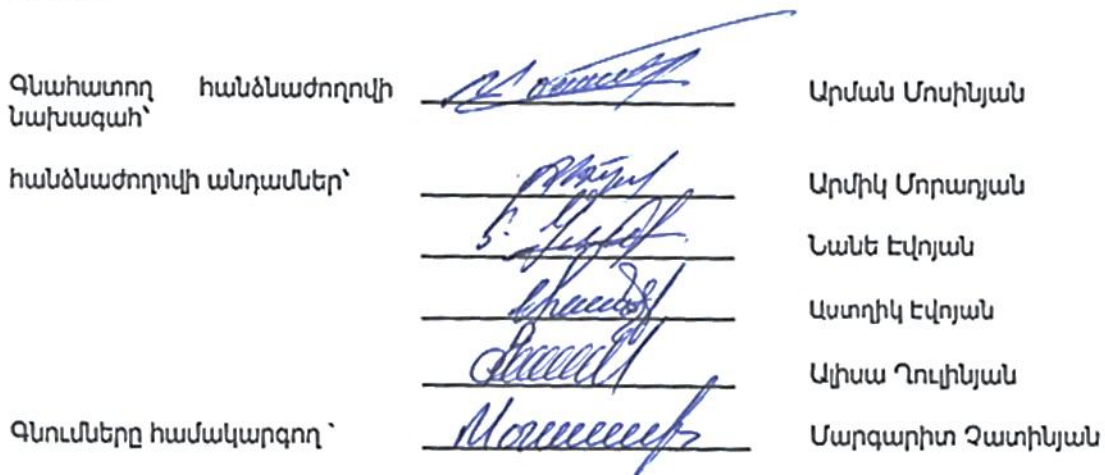 Գնահատող հանձնաժողովի Արման Մոսինյան
նախագահ՝
հանձնաժողովի անդամներ՝ Արմիկ Մորադյան
Նանե Էվոյան
Աստղիկ Էվոյան
Ալիսա Ղուլինյան
Գնումները համակարգող ՝ Մարգարիտ Չատինյան